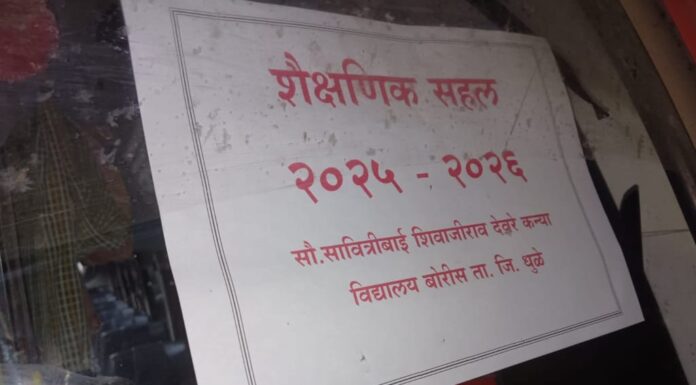 शैक्षणिक सहल
२०२५ - २०२६
सौ.सावित्रीबाई शिवाजीराव देवरे कन्या
विद्यालय बोरीस ता. जि. धुळे